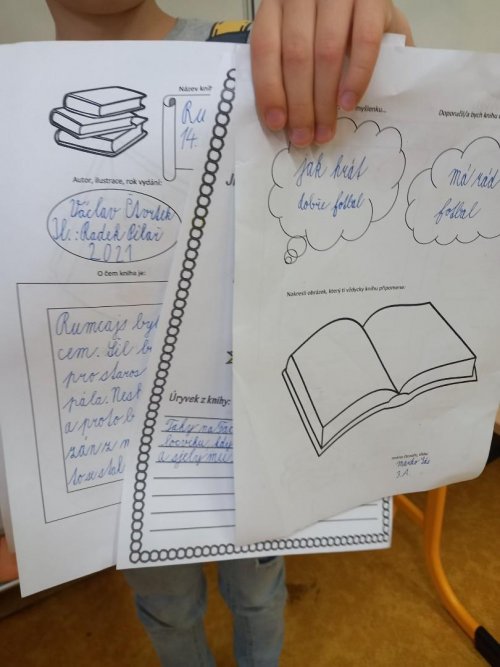 Název knih
Ru
14.
Autor, ilustrace, rok vydání:
Václav Čtvrtek
Il.: Radek Pilař
2021
O čem kniha je:
Rumcajs byl
cem. Žil b
pro staros
pála.
a proto b
zán z n
to se stal
Úryvek z knihy:
Taky na
a
myšlenku...
jak hrát
dobře fotbal
Doporučil/a bych knihu
má rád
fotbal
Nakresli obrázek, který ti vždycky knihu připomene:
3.A.